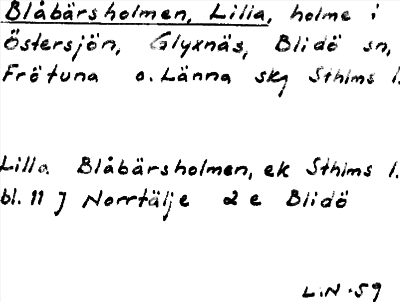 Blåbärsholmen, Lilla, holme i
Östersjön, Glyxnäs, Blidö sn,
Frötuna o. Länna skg Sthlms l.
Lilla Blåbärsholmen, ek Sthlms l.
bl. 11 J Norrtälje 2 e Blidö
L.N -59